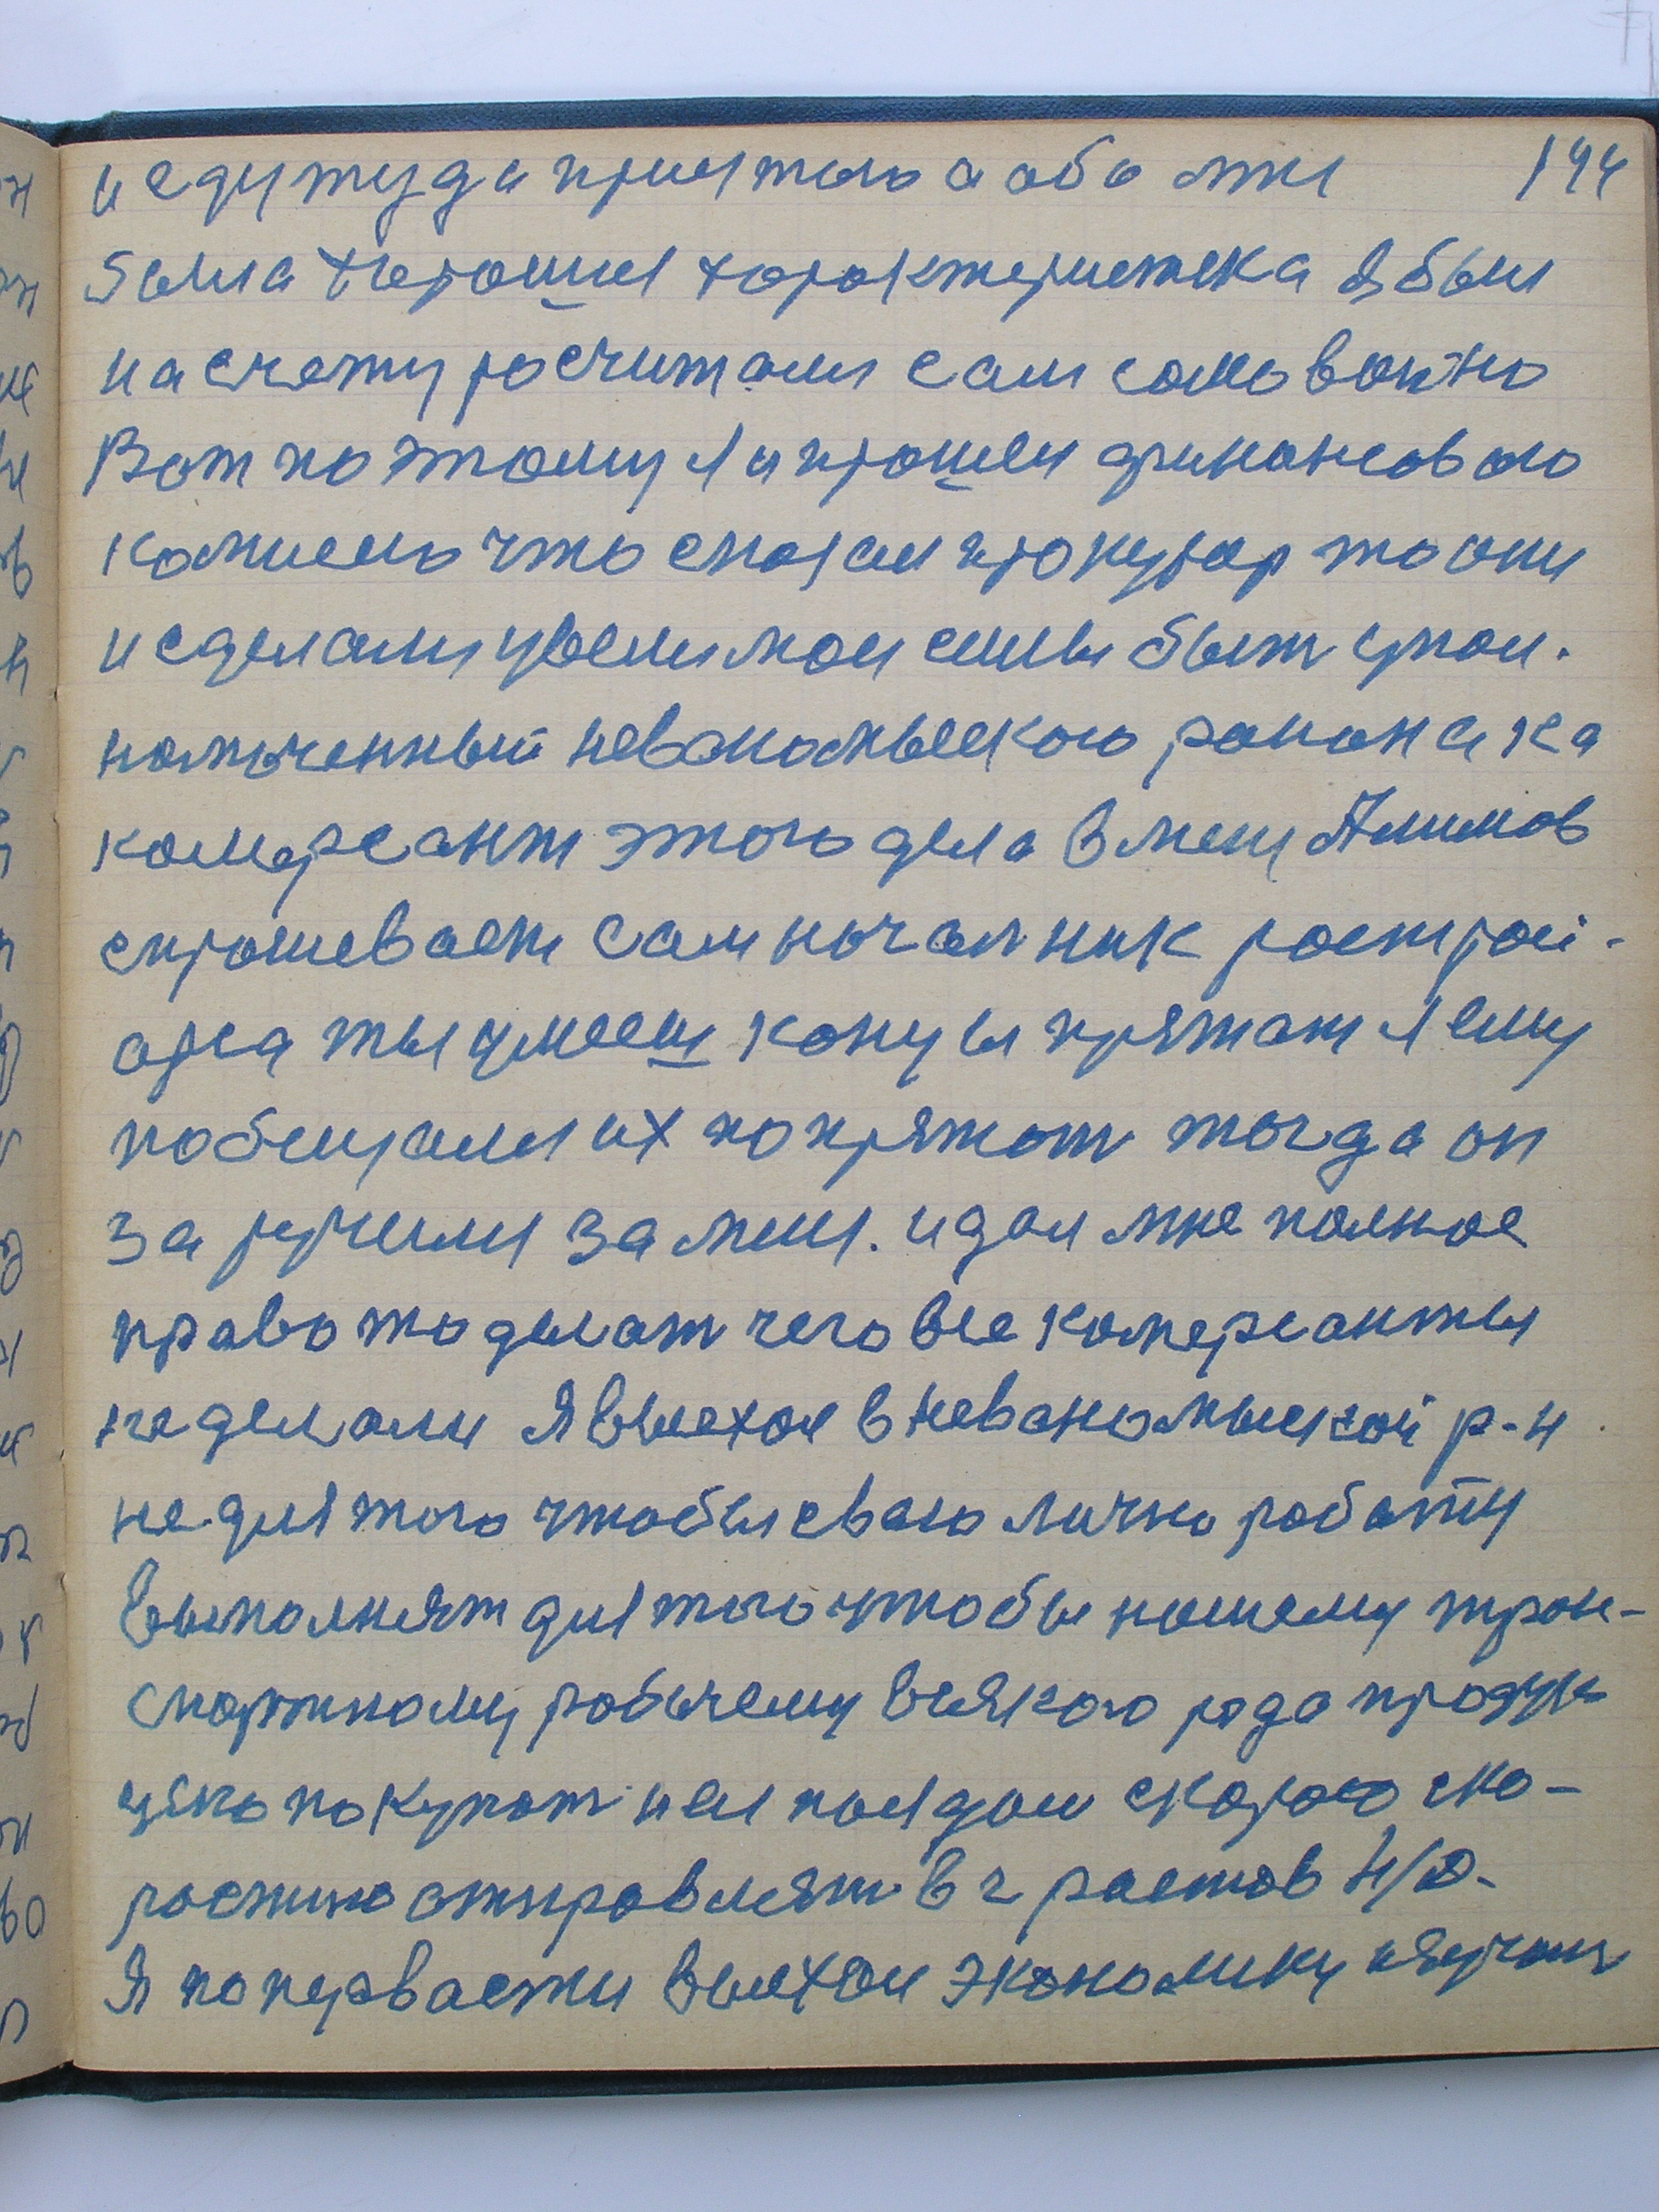 и еду туда приятого а обо мни 194
была хорошия характеристека я был
на счету росчитали сам самоважно
Вот по этому я и прошел финансоваго
камнем что сказал прокурор то они
и сделали увели мои силы быт упол-
номоченный невономыского района ка
комерсант этого дела в мени Алимов
спрошевает сам начальник росттрои-
арса ты умееш концы прятат я ему
пообещался их попрятат тогда он
за ручился за меня. и дал мне полное
право то делат чего все комерсанты
не делали Я выехал в невономыской р-н
не для того чтобы сваю лично работу
выполнят для того чтобы нашему тран-
спортному рабычему всякого рода продук
цыю покупат и ея поездом скорою ско-
ростию отправлят в г растов Н/Д.
Я по первасти выехал экономику изучат